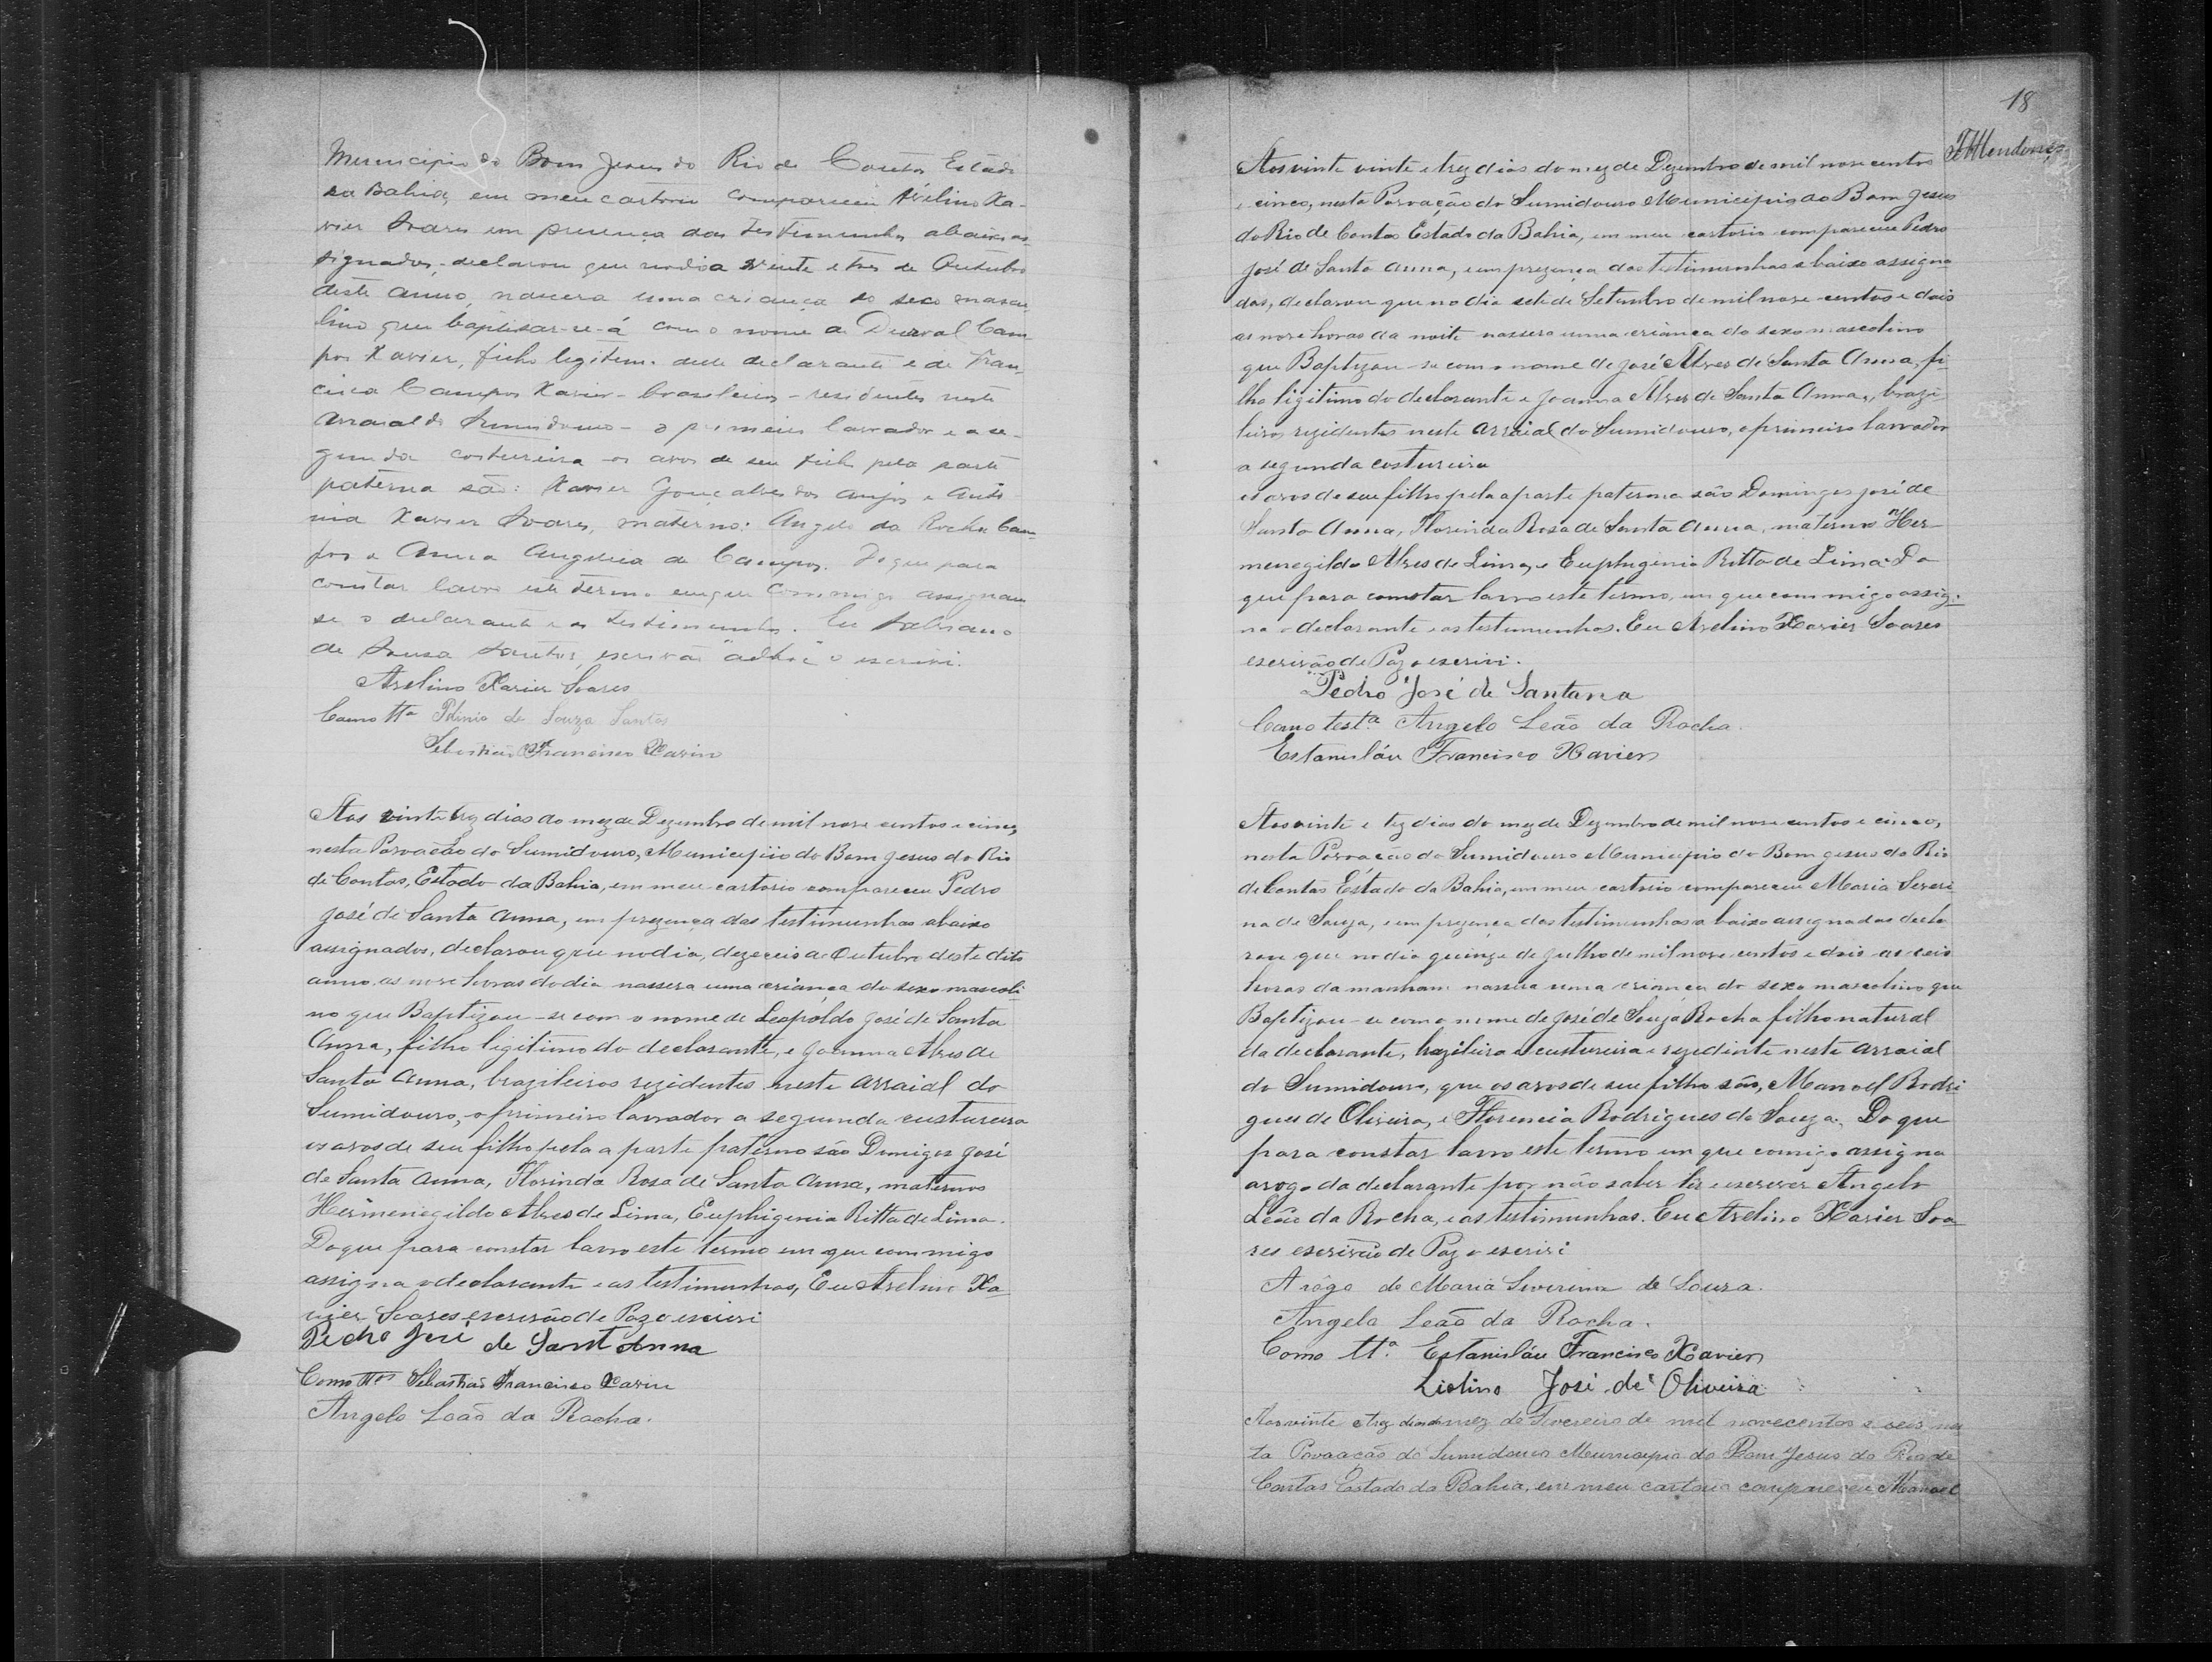 Municipio do Bom Jesus do Rio de Contas Estado
da Bahia, em meu cartorio compareceu Avelino Xa-
vier Soares em presença das testimunhas abaixo as-
signados, declarou que no dia vinte e tres de Outubro
deste anno, nascera uma criança do sexo mascu
lino que baptisar-se-á com o nome de Durval Cam
pos Xavier, filho legitimo delle declarante e de Fran-
cisca Campos Xavier - brasileiros - residentes neste
arraial do Sumidouro - o primeiro lavrador e a se-
gunda costureira - os avos de seu filho pela parte
paterna são: Xavier Gonçalves dos Anjos e Anto
nia Xavier Soares, materno: Angelo da Rocha Cam
pos e Anna Angelica de Campos. Do que para
constar lavro este termo em que commigo assignam
se o declarante e as testimunhas. Eu
de Souza Santos, escrivão "adhoc" o escrivi.
Avelino Xavier Soares
Como ttª Plinio de Souza Santos
Sebastião Francisco Xavier
Aos vinte trez dias do mez de Dezembro de mil nove centos e cinco,
nesta Povoação do Sumidouro, Municipiio do Bom Jesus do Rio
de Contas, Estado da Bahia, em meu cartorio compareceu Pedro
José de Santa Anna, em prezença das testimunhas abaixo
assignados, declarou que no dia, dezeceis de Outubro deste dito
anno as nove horas do dia nassera uma criança do sexo mascoli-
no que Baptizou-se com o nome de Leopoldo José de Santa
Anna, filho ligitimo do declarante, e Joanna Alves de
Santa Anna, brazileiros rezidentes neste arraial do
Sumidouro, o primeiro lavrador a segunda custureira
os avos de seu filho pela a parte paterno são Domigos José
de Santa Anna, Florinda Rosa de Santa Anna, maternos
Hermenegildo Alves de Lima, Euphigenia Ritta de Lima.
Do que para constar lavro este termo em que commigo
assigna o declarante e as testimunhas, Eu Avelino Xa-
vier Soares escrivão de Paz o escrivi
Pedro José de Sant Anna
Como ttas Sebastião Francisco Xavier
Angelo Leão da Rocha.
18
Aos vinte vinte e trez dias do mez de Dezembro de mil nove centos
e cinco, nesta Povoação do Sumidouro Municipio do Bom Jesus
do Rio de Contas Estado da Bahia, em meu cartorio compareceu Pedro
José de Santa Anna, e em prezença das testimunhas abaixo assigna
das, declarou que no dia sete de Setembro de mil nove centos e dois
as nove horas da noite nassera uma criança do sexo mascolino
que Baptizou-se com o nome de José Alves de Santa Anna, fi
lho ligitimo do declarante e Joanna Alves de Santa Anna, brazi-
leiros rezidentes neste arraial do Sumidouro, o primeiro lavrador
a segunda costureira
os avos de seu filho pela a parte paterna são Domingos José de
Santa Anna, Florinda Rosa de Santa Anna, materno Her-
menegildo Alves de Lima, e Euphigenia Ritta de Lima. Do
que para constar lavro este termo, em que commigo assig-
na o declarante e as testemunhas. Eu Avelino Xavier Soares
escrivão de Paz o escrivi.
Pedro José de Santana
Como testª. Angelo Leão da Rocha.
Estanisláu Francisco Xavier
Aos vinte e tez dias do mez de Dezembro de mil nove centos e cinco,
nesta Povoação do Sumidouro Municipio do Bom Jesus do Rio
de Contas Estado da Bahia, em meu cartorio compareceu Maria Severi
na de Souza, e em prezença das testimunhas abaixo assignadas decla
rou que no dia quinze de Julho de mil nove centos e dois as ceis
horas da manham nassera uma criança do sexo mascolino que
Baptizou-se com o nome de José de Souza Rocha filho natural
da declarante, brazileira e custureira e rezedinte neste arraial
do Sumidouro, que os avos de seu filho são, Manoel Rodri
gues de Oliveira, e Florencia Rodrigues de Souza. Do que
para constar lavro este termo em que comigo assigna
arogo da declarante por não saber ler e escrever Angelo
Leão da Rocha, e as testimunhas. Eu Avelino Xavier Soa
res escrivão de Paz o escrivi
A rôgo de Maria Severina de Souza.
Angelo Leaõ da Rocha.
Como ttª. Estanisláu Francisco Xavier
José de Oliveira
Aos vinte e trez dias do mez de Fevereiro de mil novecentos e seis nes
ta Povoação do Sumidouro Municipio do Bom Jesus do Rio de
Contas Estado da Bahia, em meu cartorio compareceu Manoel